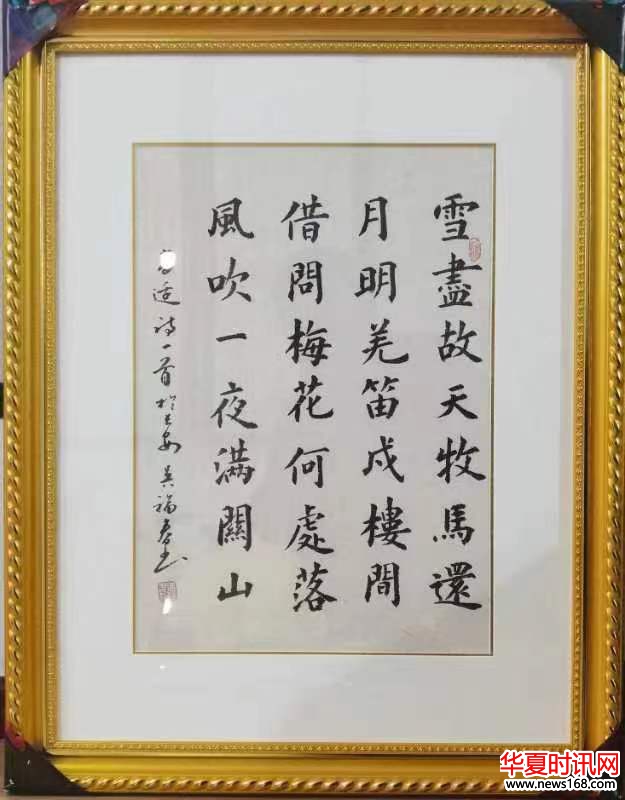 雪盡故天牧馬還
月明羌笛戍樓間
借問梅花何處落
風吹一夜滿關山
高適詩一首於長安 吳福春書
华夏时讯网
www.news168.com